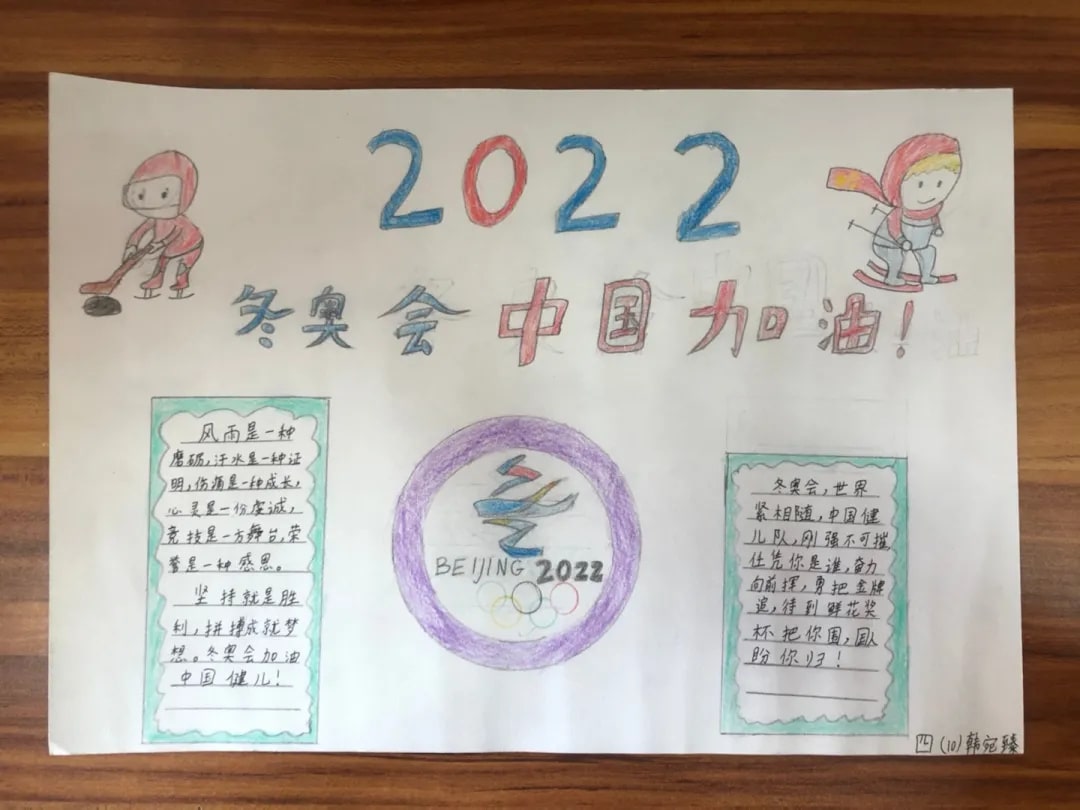 2022
冬奥会 中国加油！
风雨是一种
磨砺，汗水是一种证
明，伤痛是一种成长，
心灵是一份虔诚，
竞技是一方舞台，荣
誉是一种感恩。
坚持就是胜
利，拼搏成就梦
想。冬奥会加油
中国健儿！
BEIJING 2022
冬奥会，世界
紧相随，中国健
儿队，刚强不可摧
任凭你是谁，奋力
向前挥，勇把金牌
追，待到鲜花奖
杯把你围，国人
盼你归！
四（10）韩宛臻